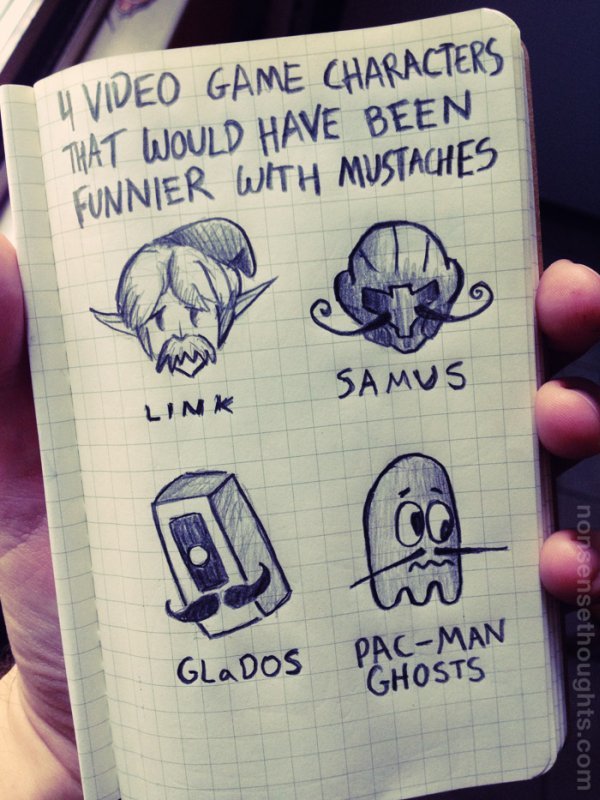 4 VIDEO GAME CHARACTERS
THAT WOULD HAVE BEEN
FUNNIER WITH MUSTACHES
LINK
SAMUS
GLaDOS
PAC-MAN
GHOSTS
nonsensethoughts.com